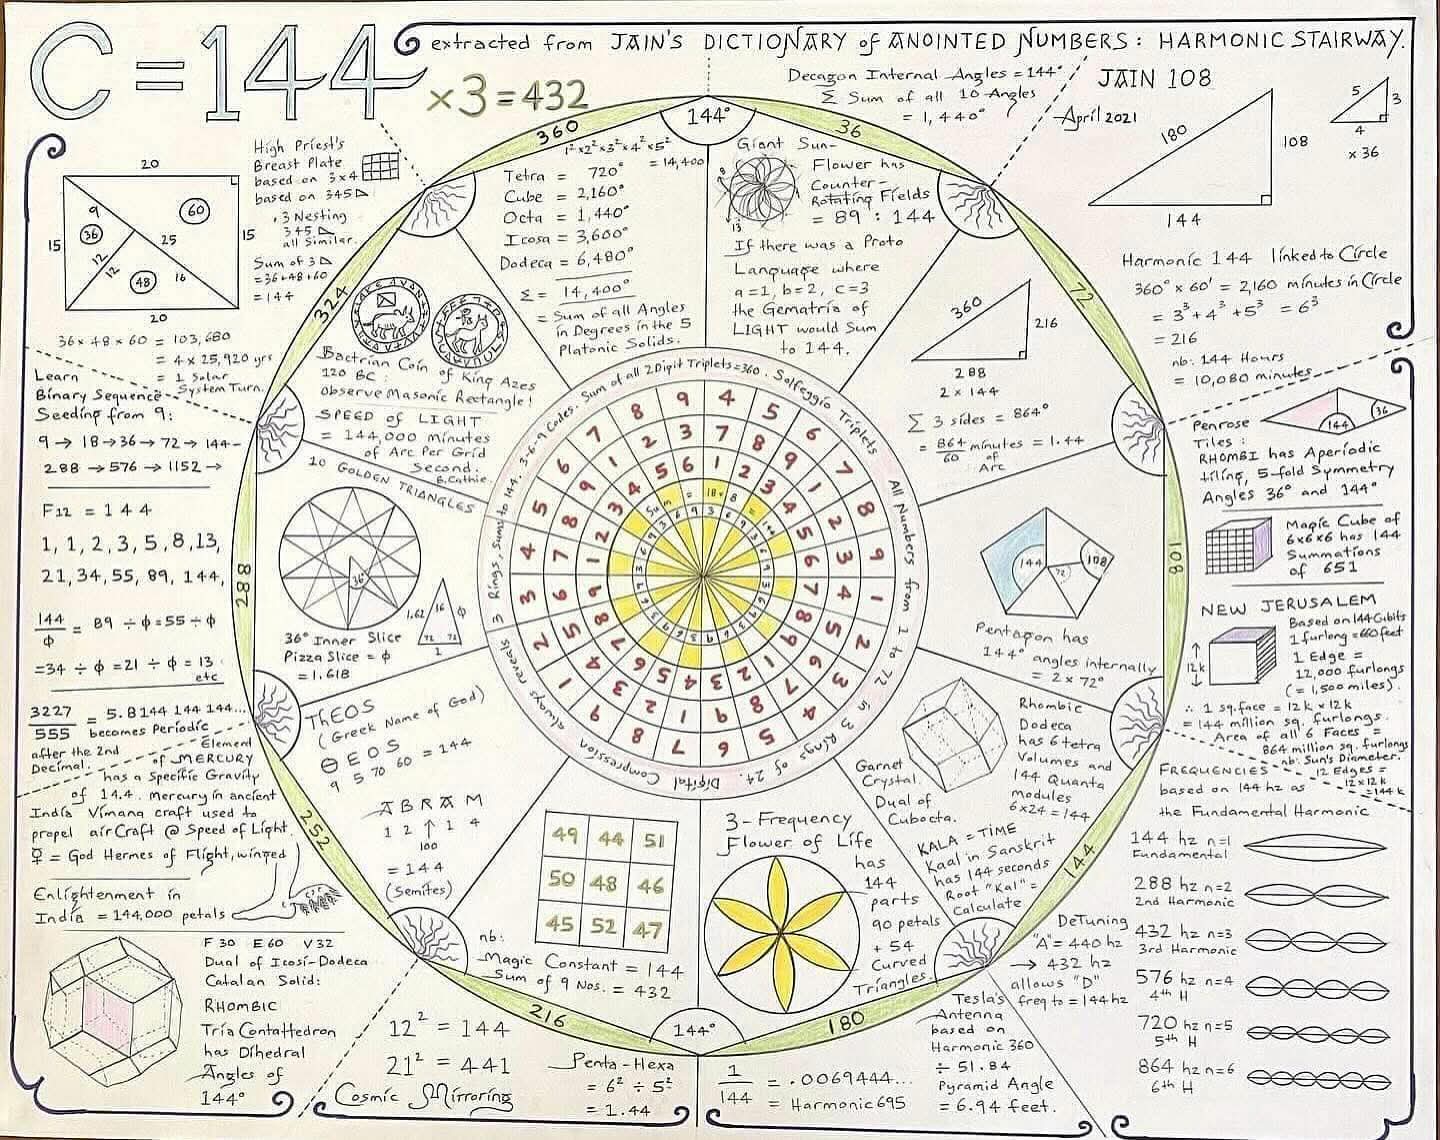 C = 144
× 3 = 432
extracted from JAIN'S DICTIONARY of ANOINTED NUMBERS: HARMONIC STAIRWAY.
JAIN 108
April 2021
Decagon Internal Angles = 144°
Σ Sum of all 10 Angles
= 1,440°
180
108
144
5
3
4
× 36
High Priest's
Breast Plate
based on 3×4
based on 345
3 Nesting
345
all Similar.
Sum of 3
= 36+48+60
= 144
20
15
9
36
60
25
12
12
48
16
15
20
36 × 48 × 60 = 103,680
= 4 × 25,920 yrs
= 1 Solar
System Turn.
Learn
Binary Sequence
Seeding from 9:
9 → 18 → 36 → 72 → 144 -
288 → 576 → 1152 →
F12 = 144
1, 1, 2, 3, 5, 8, 13,
21, 34, 55, 89, 144,
144/ϕ = 89 ÷ ϕ = 55 ÷ ϕ
= 34 ÷ ϕ = 21 ÷ ϕ = 13
etc
3227/555 = 5.8144 144 144...
becomes Periodic
after the 2nd
Decimal.
Element
of MERCURY
has a Specific Gravity
of 14.4. Mercury in ancient
India Vimana craft used to
propel airCraft @ Speed of Light.
☿ = God Hermes of Flight, winged
Enlightenment in
India = 144,000 petals
F 30 E 60 V 32
Dual of Icosi-Dodeca
Catalan Solid:
RHOMBIC
TriaContaHedron
has Dihedral
Angles of
144°
360
36
72
108
144
180
216
252
288
324
144°
144°
1²×2²×3²×4²×5²
= 14,400
Tetra = 720°
Cube = 2,160°
Octa = 1,440°
Icosa = 3,600°
Dodeca = 6,480°
Σ = 14,400°
= Sum of all Angles
in Degrees in the 5
Platonic Solids.
Giant Sun-
Flower has
Counter-
Rotating Fields
= 89 : 144
8
13
If there was a Proto
Language where
a=1, b=2, c=3
the Gematria of
LIGHT would Sum
to 144.
360
216
288
2 × 144
Σ 3 sides = 864°
= 864/60 minutes = 1.44
of
Arc
Bactrian Coin of King Azes
120 BC:
observe Masonic Rectangle!
SPEED of LIGHT
= 144,000 minutes
of Arc Per Grid
Second.
B.Cathie.
10 GOLDEN TRIANGLES
36°
36° Inner Slice
Pizza Slice = ϕ
= 1.618
1.62
36
ϕ
72
72
1
ThEOS
(Greek Name of God)
Θ E O S = 144
9 5 70 60
A B R A M
1 2 ↑ 1 4
100
= 144
(Semites)
Digital Compression always reveals 3 Rings, sums to 144. 3-6-9 Codes. Sum of all 2 Digit Triplets = 360. Solfeggio Triplets
All Numbers from 1 to 72 is 3 Rings of 24.
Sum = 18×8 = 144
144
72
108
Pentagon has
144° angles internally
= 2 × 72°
Garnet
Crystal.
Dual of
Cubocta.
Rhombic
Dodeca
has 6 tetra
Volumes and
144 Quanta
modules
6×24 = 144
KALA = TIME
Kaal in Sanskrit
has 144 seconds
Root "Kal" =
Calculate
49 44 51
50 48 46
45 52 47
nb:
Magic Constant = 144
Sum of 9 Nos. = 432
3-Frequency
Flower of Life
has
144
parts
90 petals
+ 54
Curved
Triangles
12² = 144
21² = 441
Cosmic Mirroring
Penta-Hexa
= 6² ÷ 5²
= 1.44
1/144 = .0069444...
= Harmonic 695
Tesla's
Antenna
based on
Harmonic 360
÷ 51.84
Pyramid Angle
= 6.94 feet.
DeTuning
"A" = 440 hz
→ 432 hz
allows "D"
freq to = 144 hz
Harmonic 144 linked to Circle
360° × 60' = 2,160 minutes in Circle
= 3³ + 4³ + 5³ = 6³
= 216
nb: 144 Hours
= 10,080 minutes
144
36
Penrose
Tiles:
RHOMBI has Aperiodic
tiling, 5-fold Symmetry
Angles 36° and 144°
Magic Cube of
6x6x6 has 144
Summations
of 651
NEW JERUSALEM
Based on 144 Cubits
1 furlong = 660 feet
1 Edge =
12,000 furlongs
(= 1,500 miles).
12k
∴ 1 sq. face = 12k × 12k
= 144 million sq. furlongs.
Area of all 6 Faces =
864 million sq. furlongs
nb: Sun's Diameter.
12 Edges =
12×12k
= 144k
FREQUENCIES
based on 144 hz as
the Fundamental Harmonic
144 hz n=1
Fundamental
288 hz n=2
2nd Harmonic
432 hz n=3
3rd Harmonic
576 hz n=4
4th H
720 hz n=5
5th H
864 hz n=6
6th H